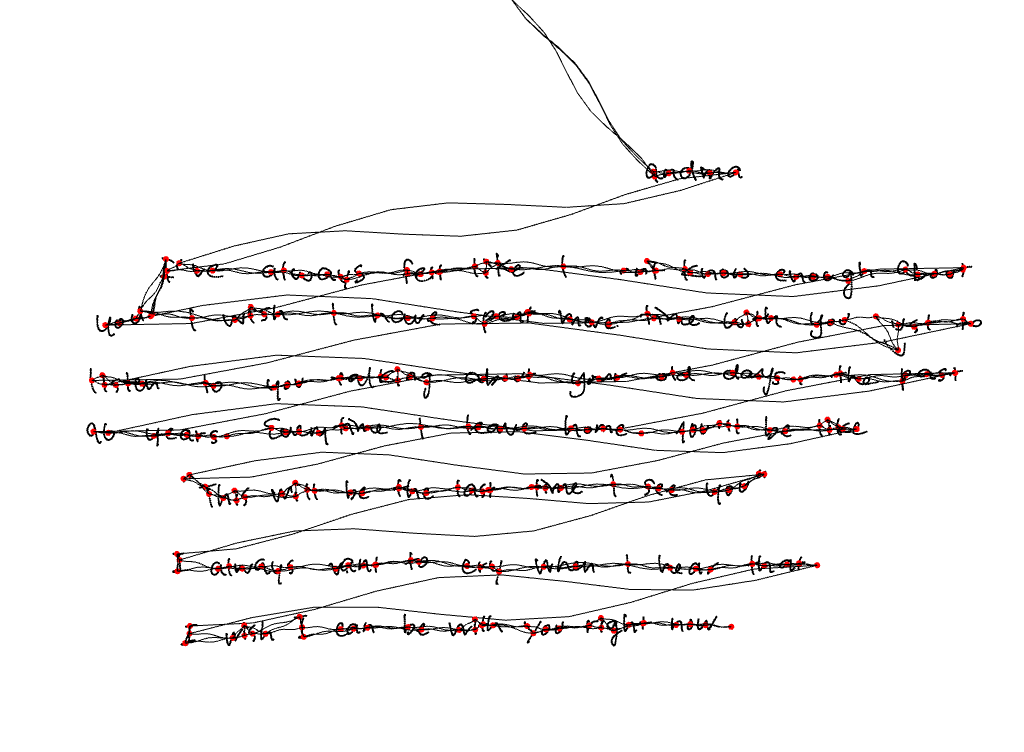 andma
I've always felt like I not know enough about
you I wish I have spent more time with you just to
listen to you talking about your old days. the past
90 years. Everytime I leave home. you'll be like
"This will be the last time I see you"
I always want to cry when I hear that.
I wish I can be with you right now.